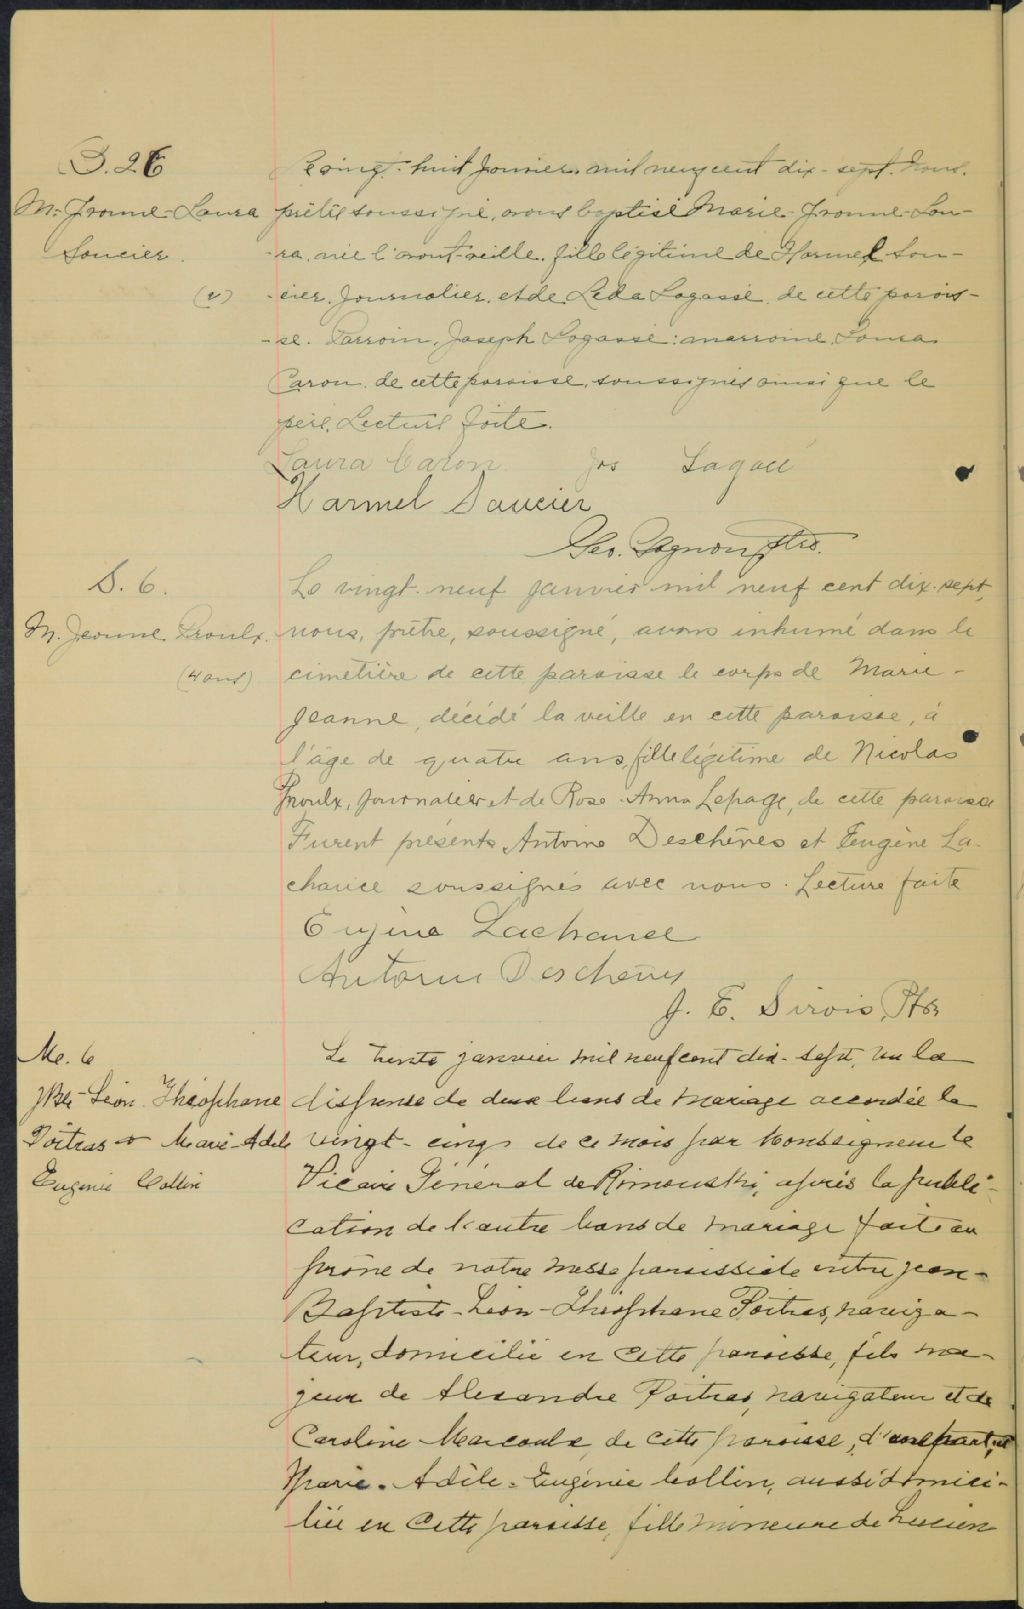 B. 26
M.-Yvonne-Laura
Saucier.
(v)
Le vingt-huit janvier mil neuf cent dix-sept. Nous,
prêtre soussigné, avons baptisé Marie-Yvonne-Lau-
-ra, née l'avant-veille, fille légitime de Harmel Sau-
-cier, journalier, et de Léda Lagassé, de cette parois-
-se. Parrain, Joseph Lagassé: marraine, Laura
Caron, de cette paroisse, soussignés ainsi que le
père. Lecture faite.
Laura Caron Jos Lagacé
Harmel Saucier
Geo. Gagnon Ptre.
S. 6.
M. Jeanne Proulx.
(4 ans)
Le vingt-neuf janvier mil neuf cent dix-sept,
nous, prêtre, soussigné, avons inhumé dans le
cimetière de cette paroisse le corps de Marie-
Jeanne, décédé la veille en cette paroisse, à
l'âge de quatre ans, fille légitime de Nicolas
Proulx, journalier et de Rose-Anna Lepage, de cette paroisse
Furent présents Antoine Deschênes et Eugène La-
chance soussignés avec nous. Lecture faite
Eugène Lachance
Antoine Deschênes
J. E. Sirois, Ptre
Me. 6
JBte-Léon Théophane
Poitras & Marie-Adèle
Eugénie Collin
Le trente janvier mil neuf cent dix-sept, vu la
dispense de deux bans de mariage accordée le
vingt-cinq de ce mois par Monseigneur le
Vicaire Général de Rimouski, après la publi-
cation de l'autre bans de mariage faite au
prône de notre messe paroissiale entre Jean-
Baptiste-Léon-Théophane Poitras, naviga-
teur, domicilié en cette paroisse, fils ma-
jeur de Alexandre Poitras, navigateur et de
Caroline Marcoulx, de cette paroisse, d'une part, et
Marie-Adèle-Eugénie Collin, aussi domici-
liée en cette paroisse, fille mineure de Lucien